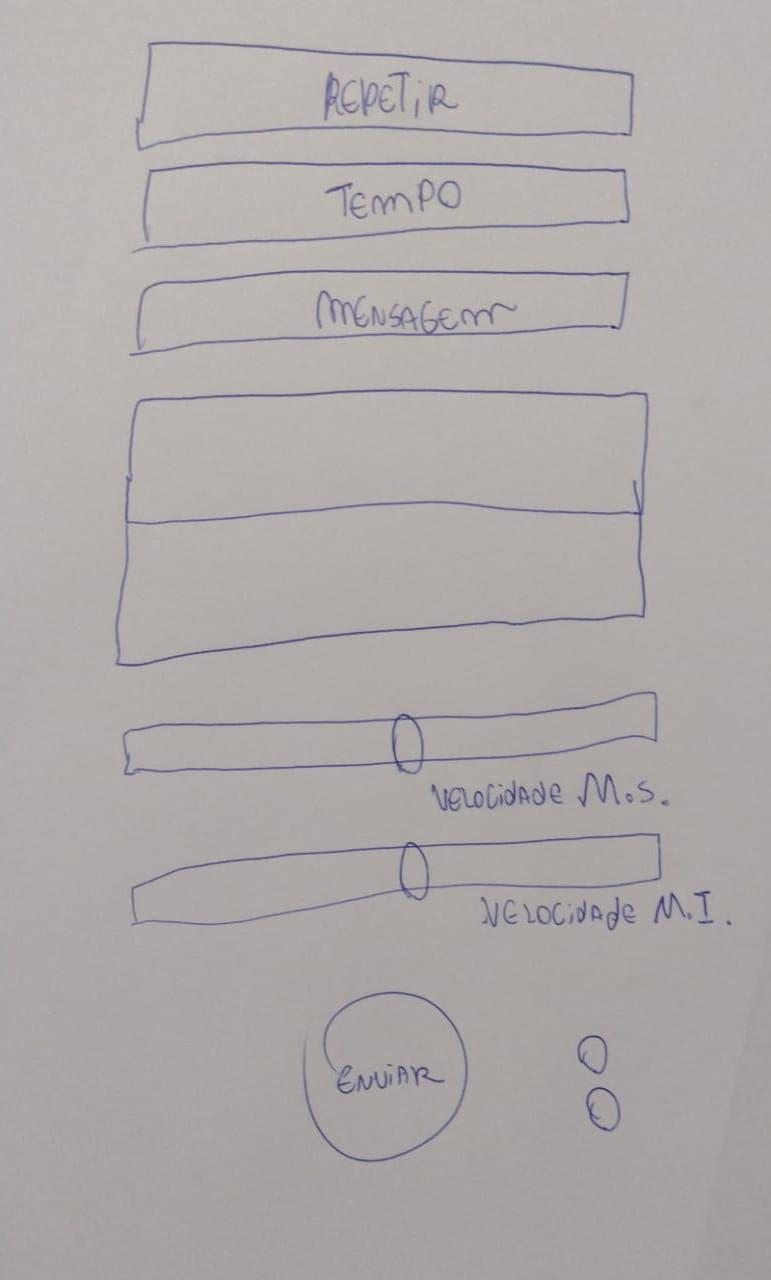 REPETIR
TEMPO
MENSAGEM
VELOCIDADE M.S.
VELOCIDADE M.I.
ENVIAR